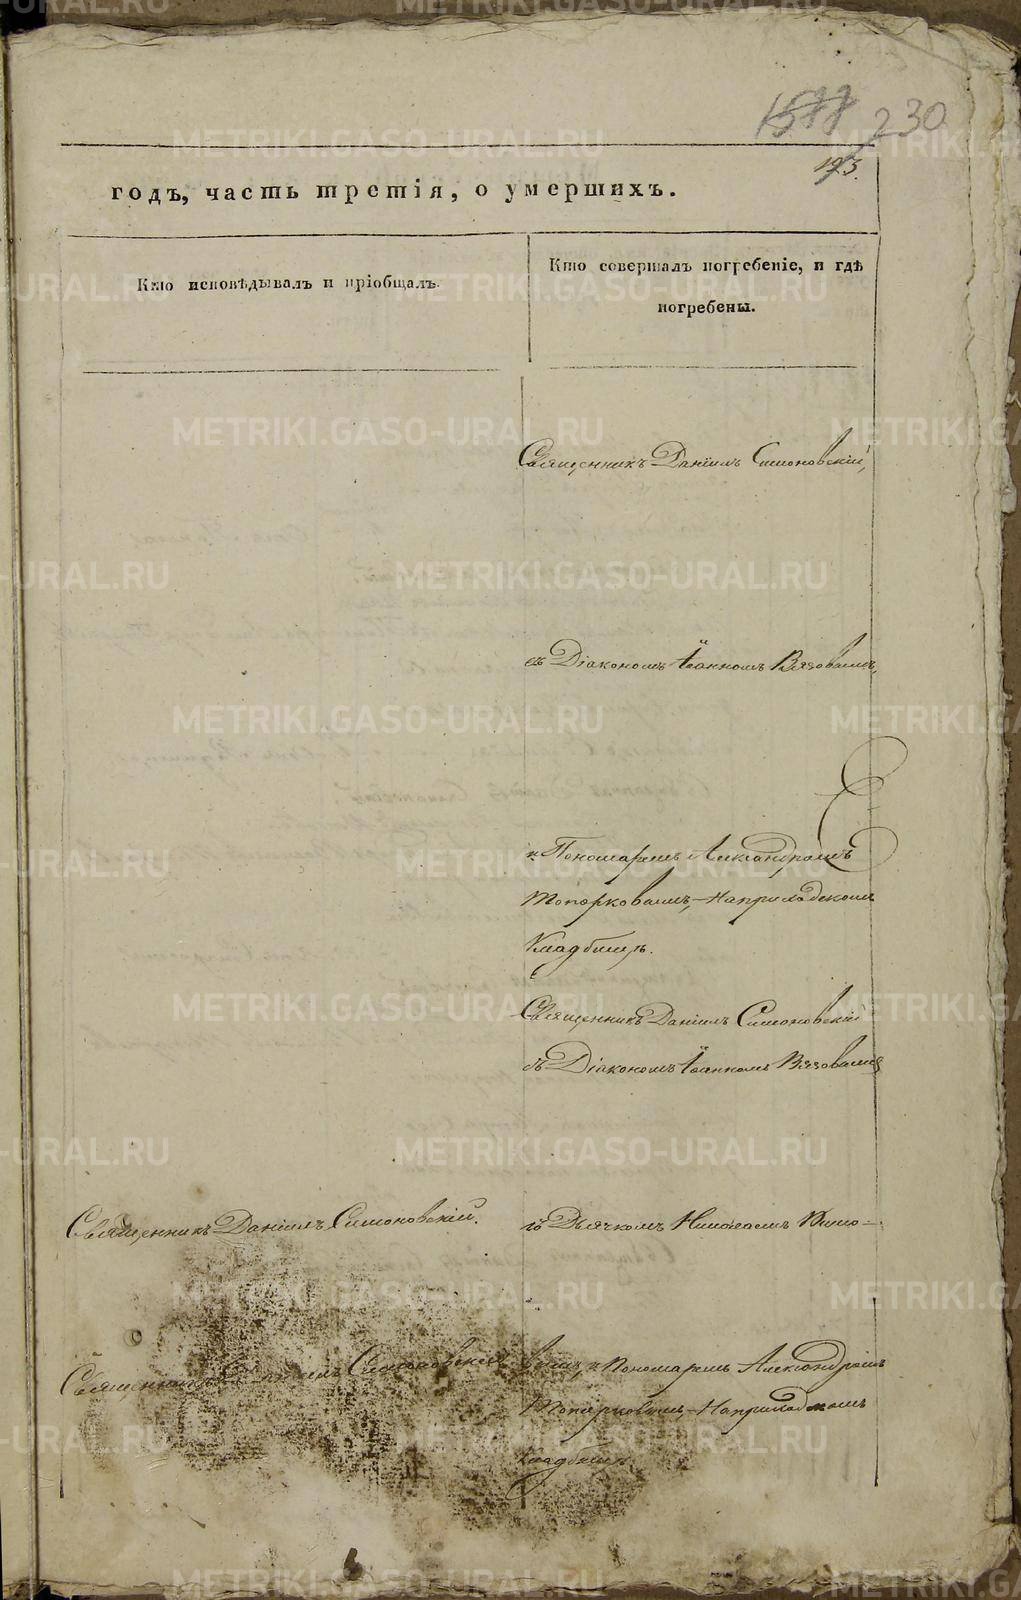 230
193.
годъ, часть третія, о умершихъ.
Кто исповѣдывалъ и пріобщалъ.
Кто совершалъ погребеніе, и гдѣ
погребены.
Священникъ Даніилъ Симоновскій,
съ Діакономъ Іоанномъ Вязовымъ,
и Пономаремъ Александромъ
Топорковымъ, На приходскомъ
Кладбищѣ.
Священникъ Даніилъ Симоновскій
съ Діакономъ Іоанномъ Вязовымъ
Священникъ Даніилъ Симоновскій.
Дьячкомъ Николаемъ
Священникъ Симоновскій
и Пономаремъ Александромъ
Топорковымъ, На приходскомъ
Кладбищѣ
METRIKI.GASO-URAL.RU